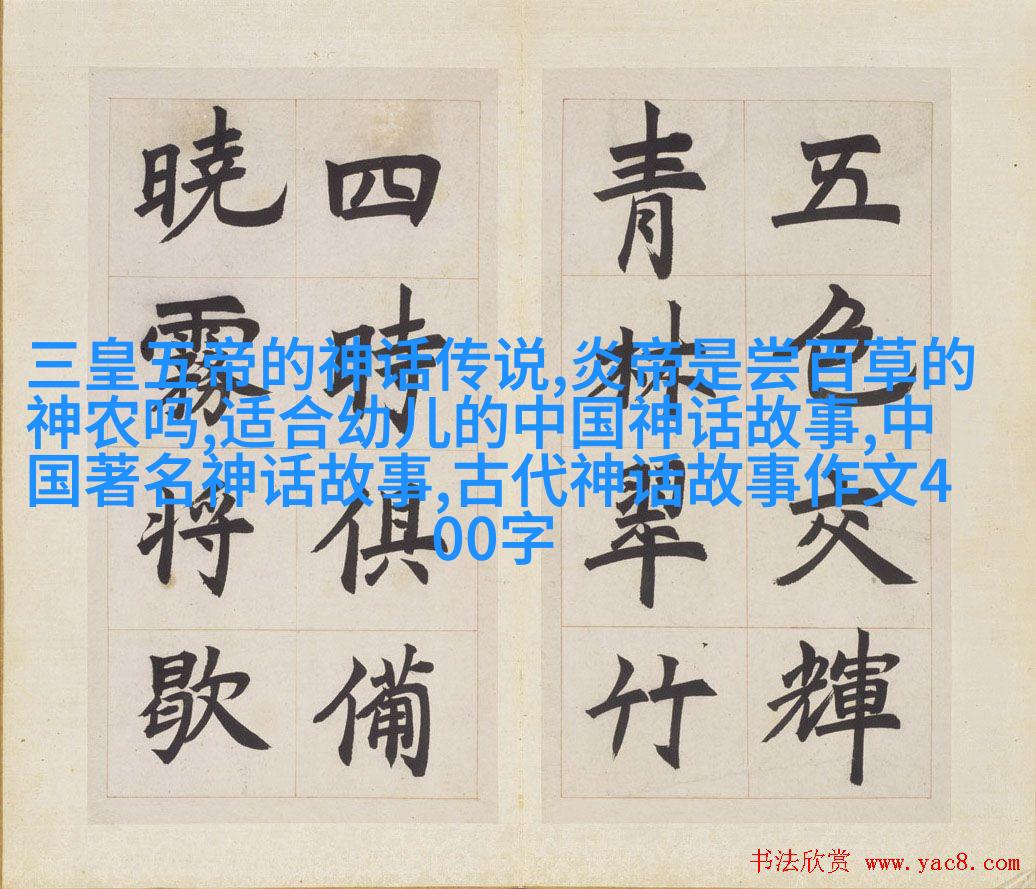 五色交輝
青林翠竹
四時俱備
曉霧将歇
三皇五帝的神话传说,炎帝是尝百草的
神农吗,适合幼儿的中国神话故事,中
国著名神话故事,古代神话故事作文4
00字
书法欣赏 www.yac8.com